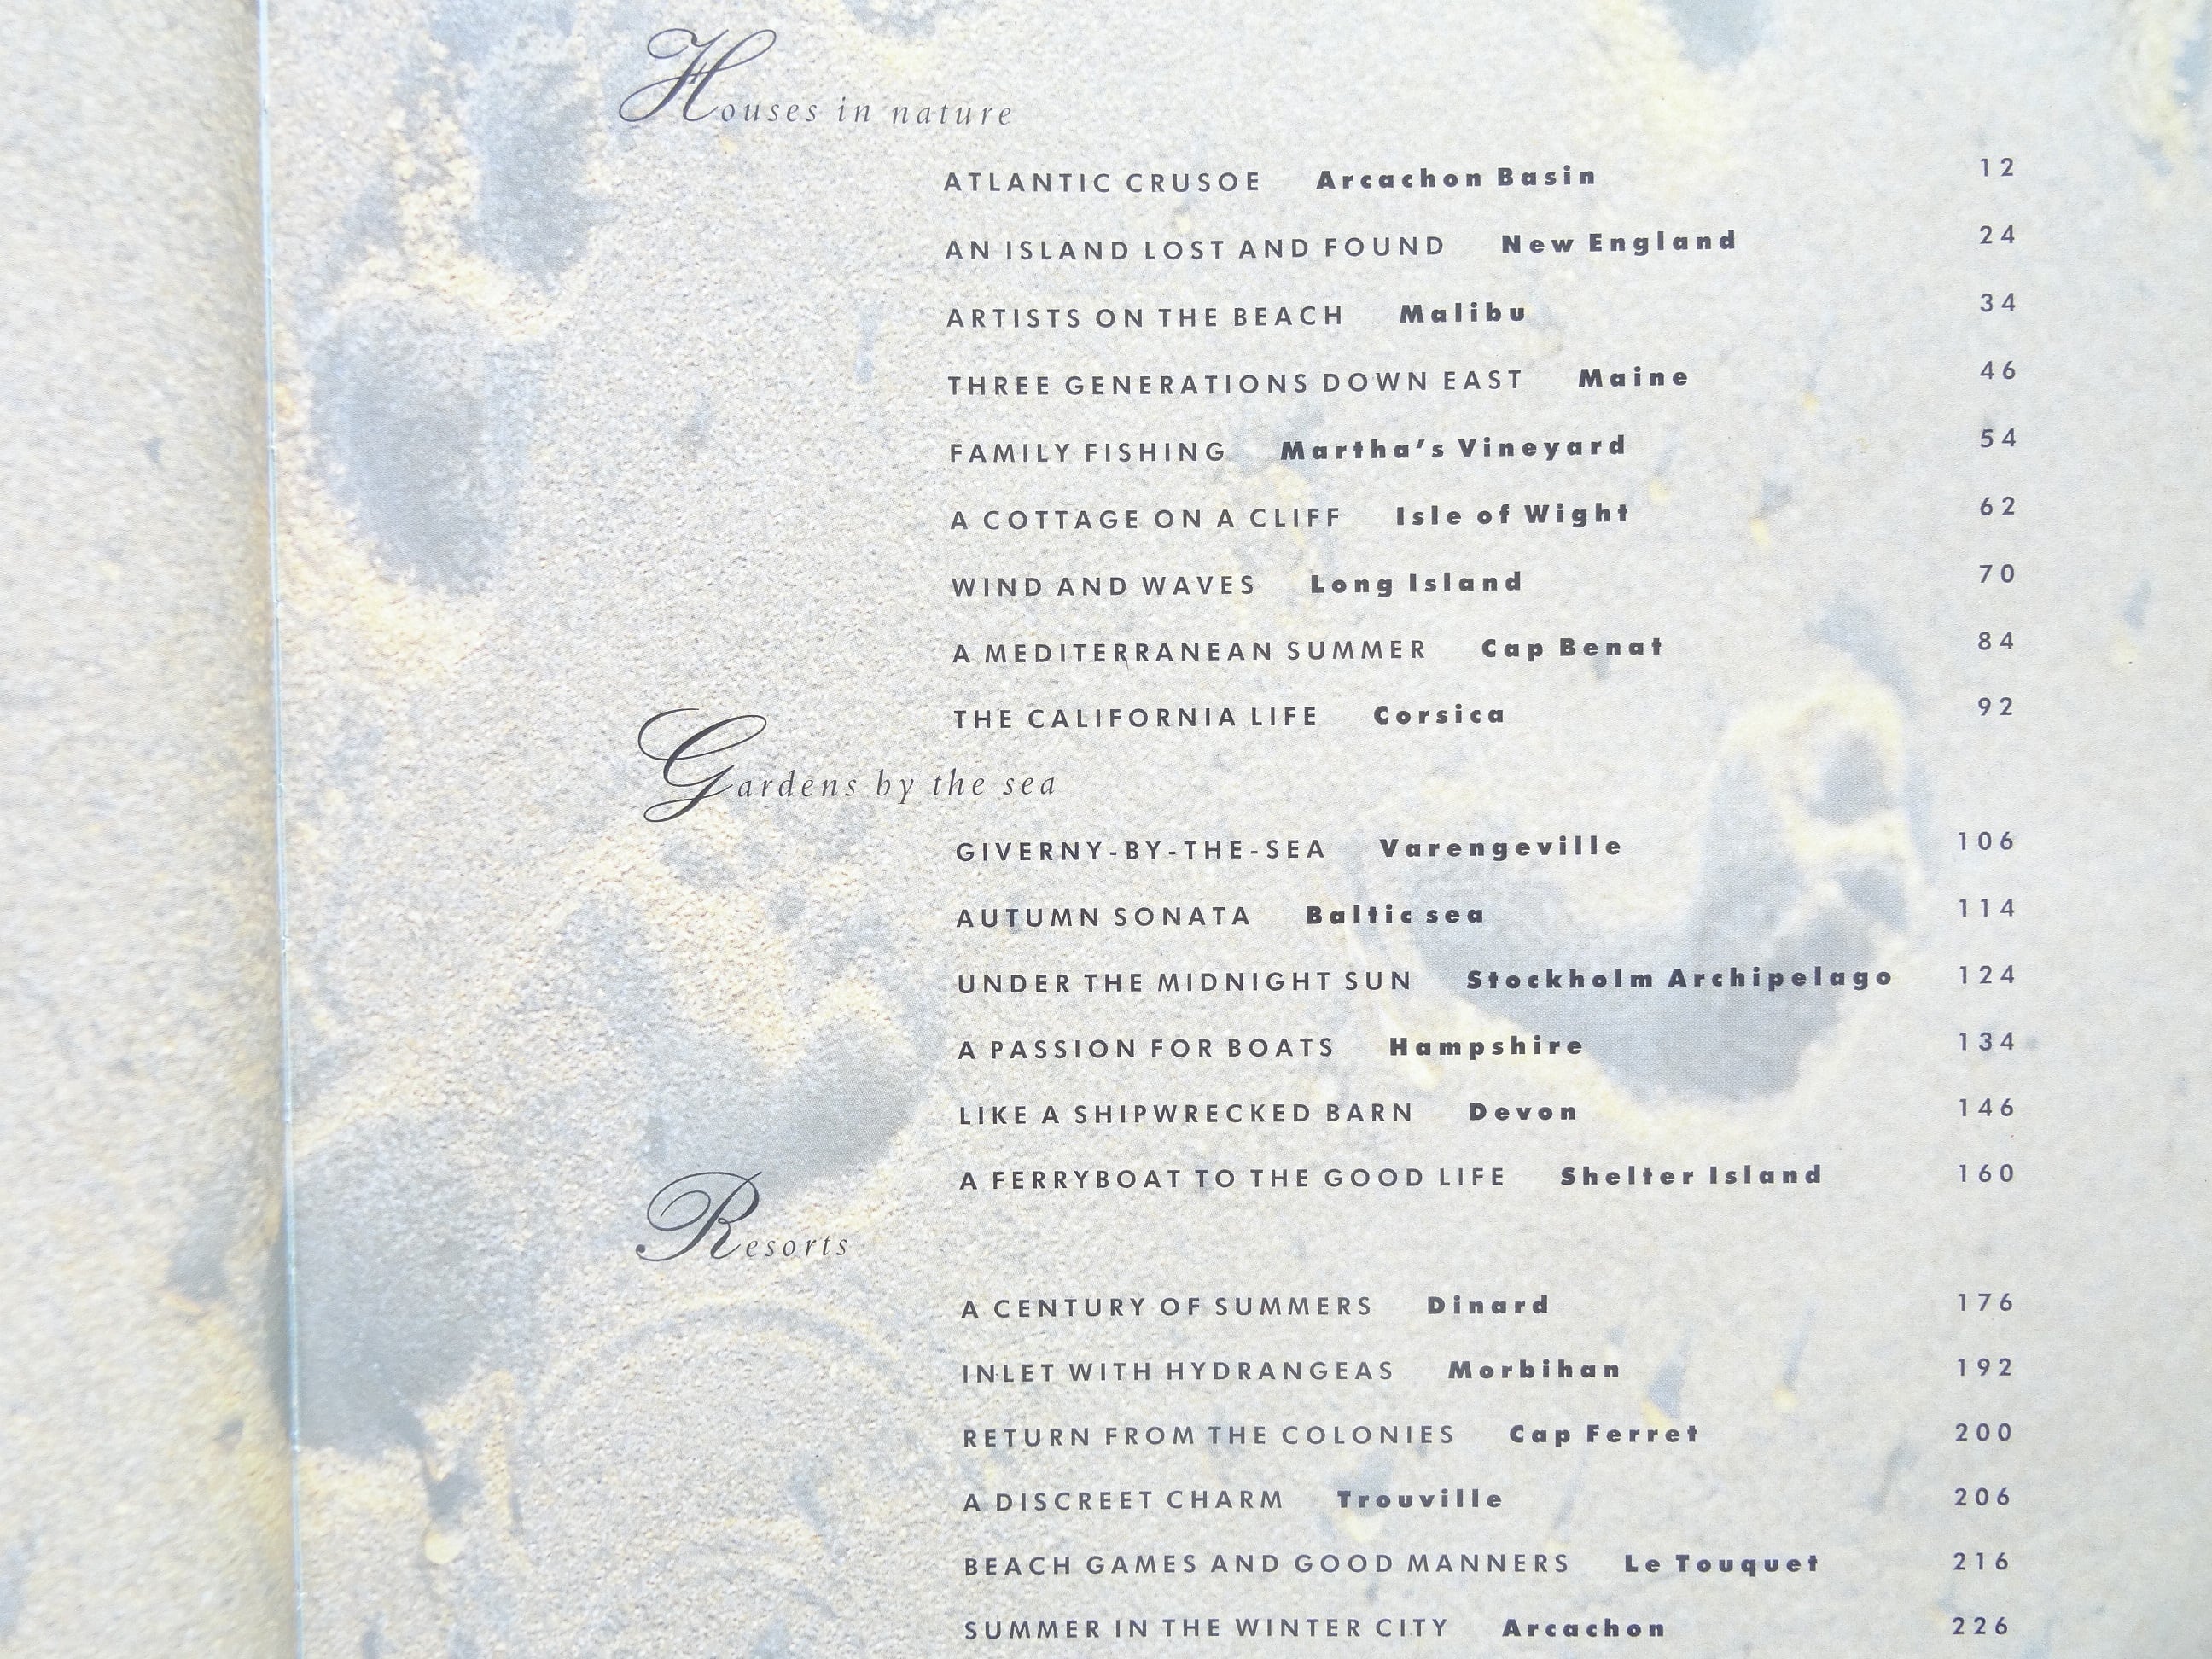 Houses in nature
ATLANTIC CRUSOE Arcachon Basin 12
AN ISLAND LOST AND FOUND New England 24
ARTISTS ON THE BEACH Malibu 34
THREE GENERATIONS DOWN EAST Maine 46
FAMILY FISHING Martha's Vineyard 54
A COTTAGE ON A CLIFF Isle of Wight 62
WIND AND WAVES Long Island 70
A MEDITERRANEAN SUMMER Cap Benat 84
THE CALIFORNIA LIFE Corsica 92
Gardens by the sea
GIVERNY-BY-THE-SEA Varengeville 106
AUTUMN SONATA Baltic sea 114
UNDER THE MIDNIGHT SUN Stockholm Archipelago 124
A PASSION FOR BOATS Hampshire 134
LIKE A SHIPWRECKED BARN Devon 146
A FERRYBOAT TO THE GOOD LIFE Shelter Island 160
Resorts
A CENTURY OF SUMMERS Dinard 176
INLET WITH HYDRANGEAS Morbihan 192
RETURN FROM THE COLONIES Cap Ferret 200
A DISCREET CHARM Trouville 206
BEACH GAMES AND GOOD MANNERS Le Touquet 216
SUMMER IN THE WINTER CITY Arcachon 226